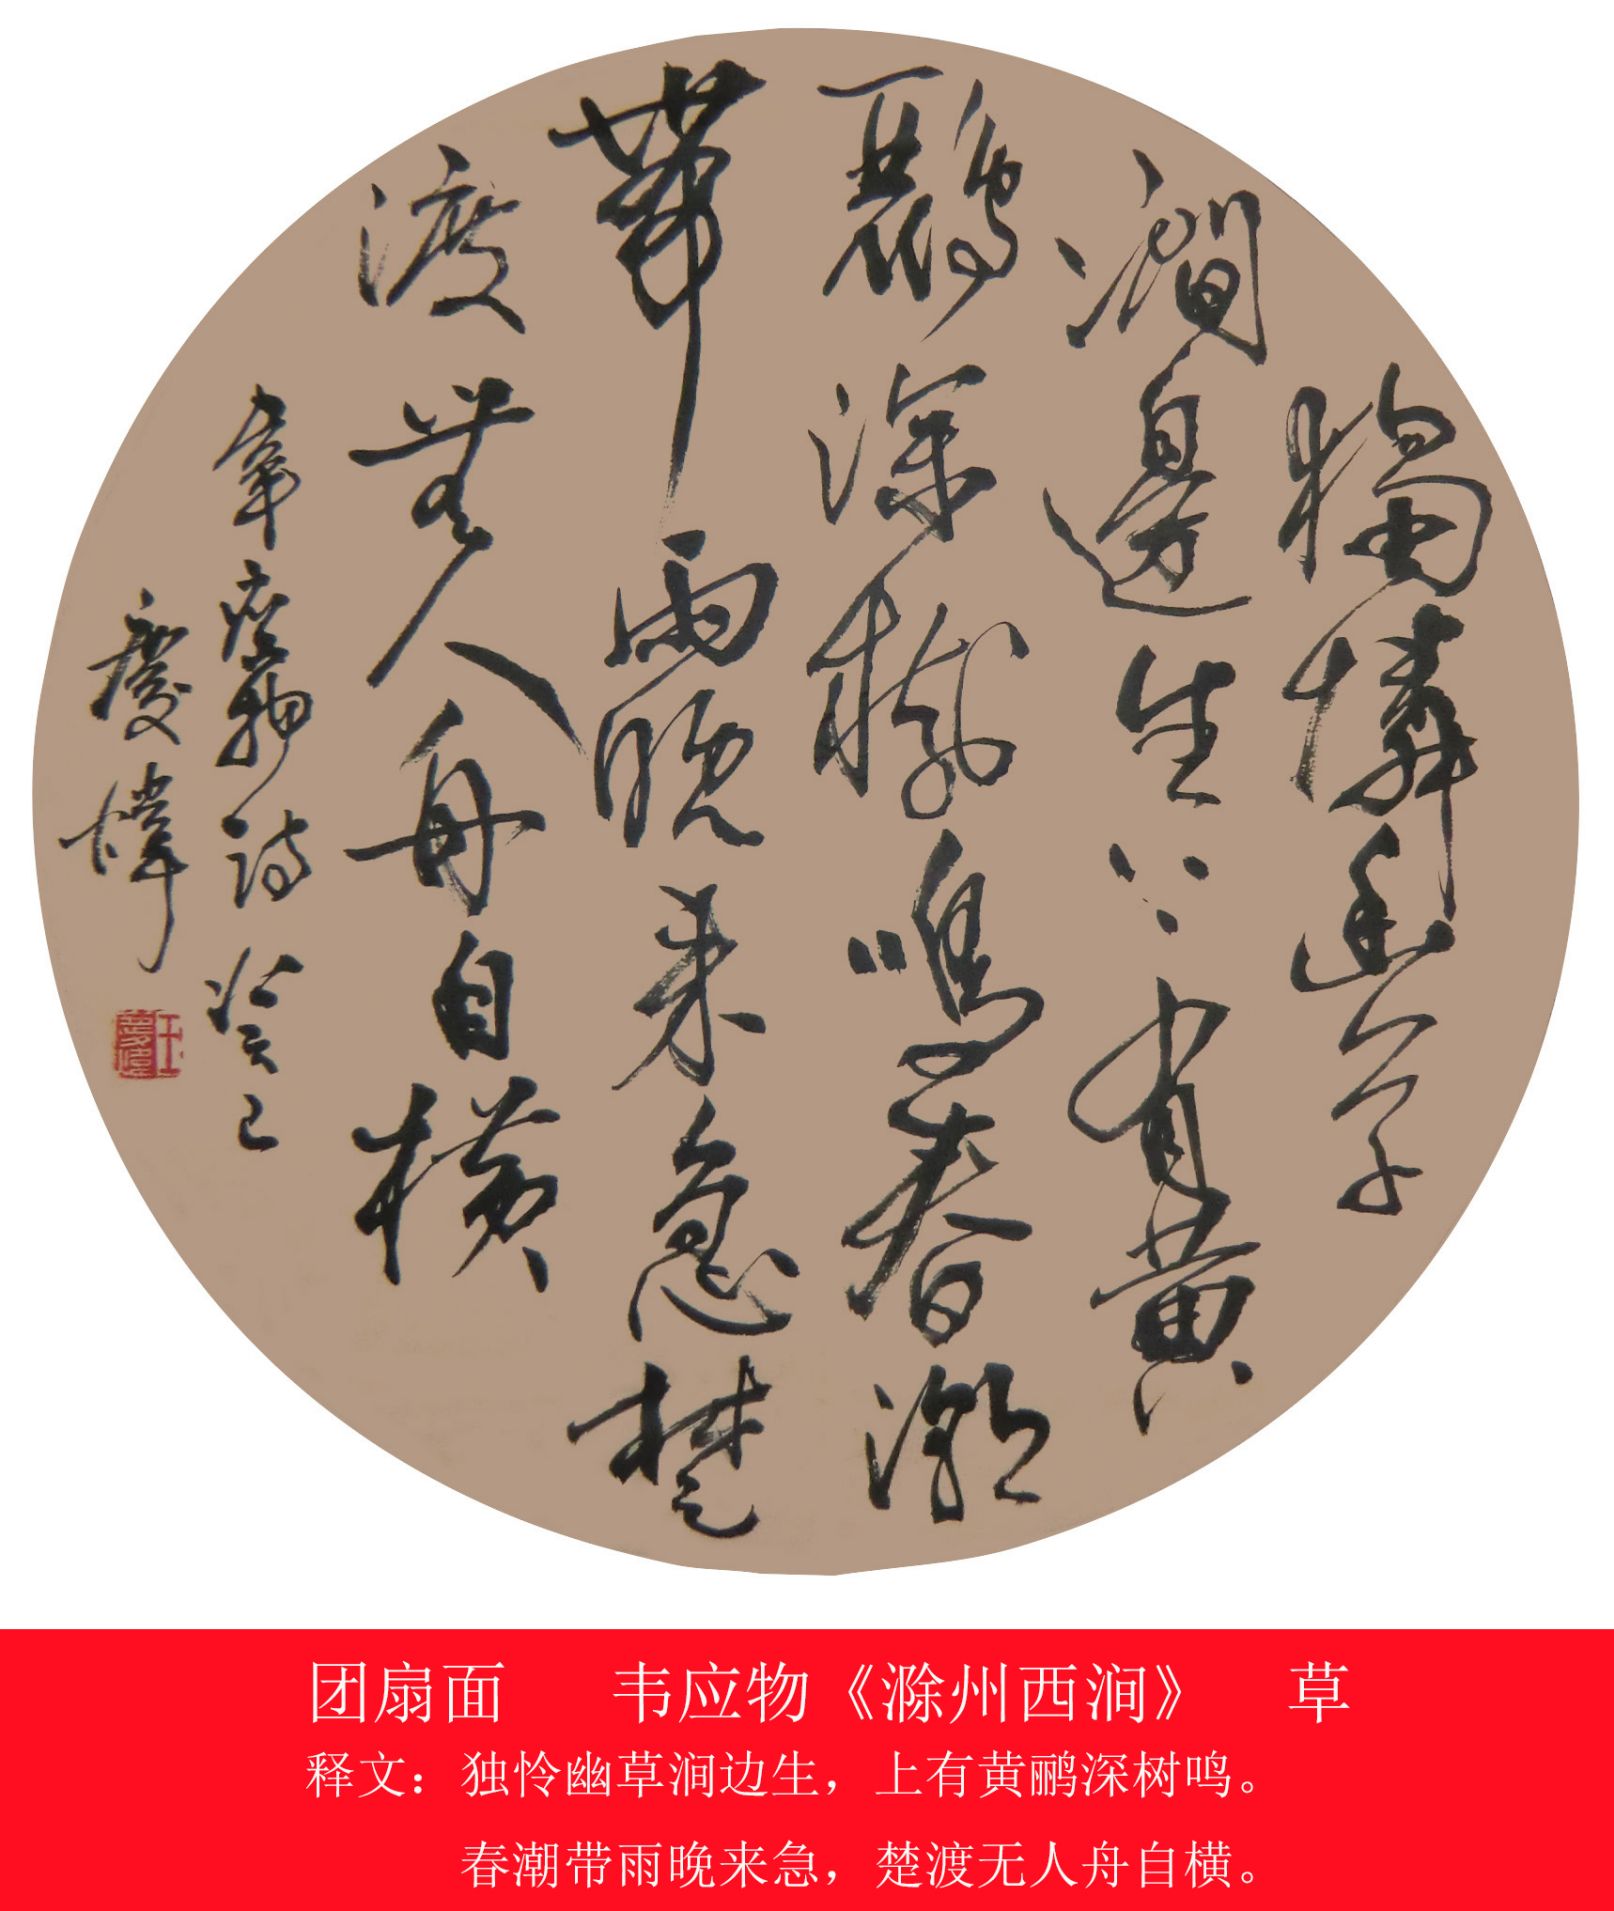 獨憐幽草
澗邊生上有黃
鸝深樹鳴春潮
帶雨晚來急楚
渡無人舟自橫
韋應物詩癸巳
慶
团扇面 韦应物《滁州西涧》 草
释文：独怜幽草涧边生，上有黄鹂深树鸣。
春潮带雨晚来急，楚渡无人舟自横。